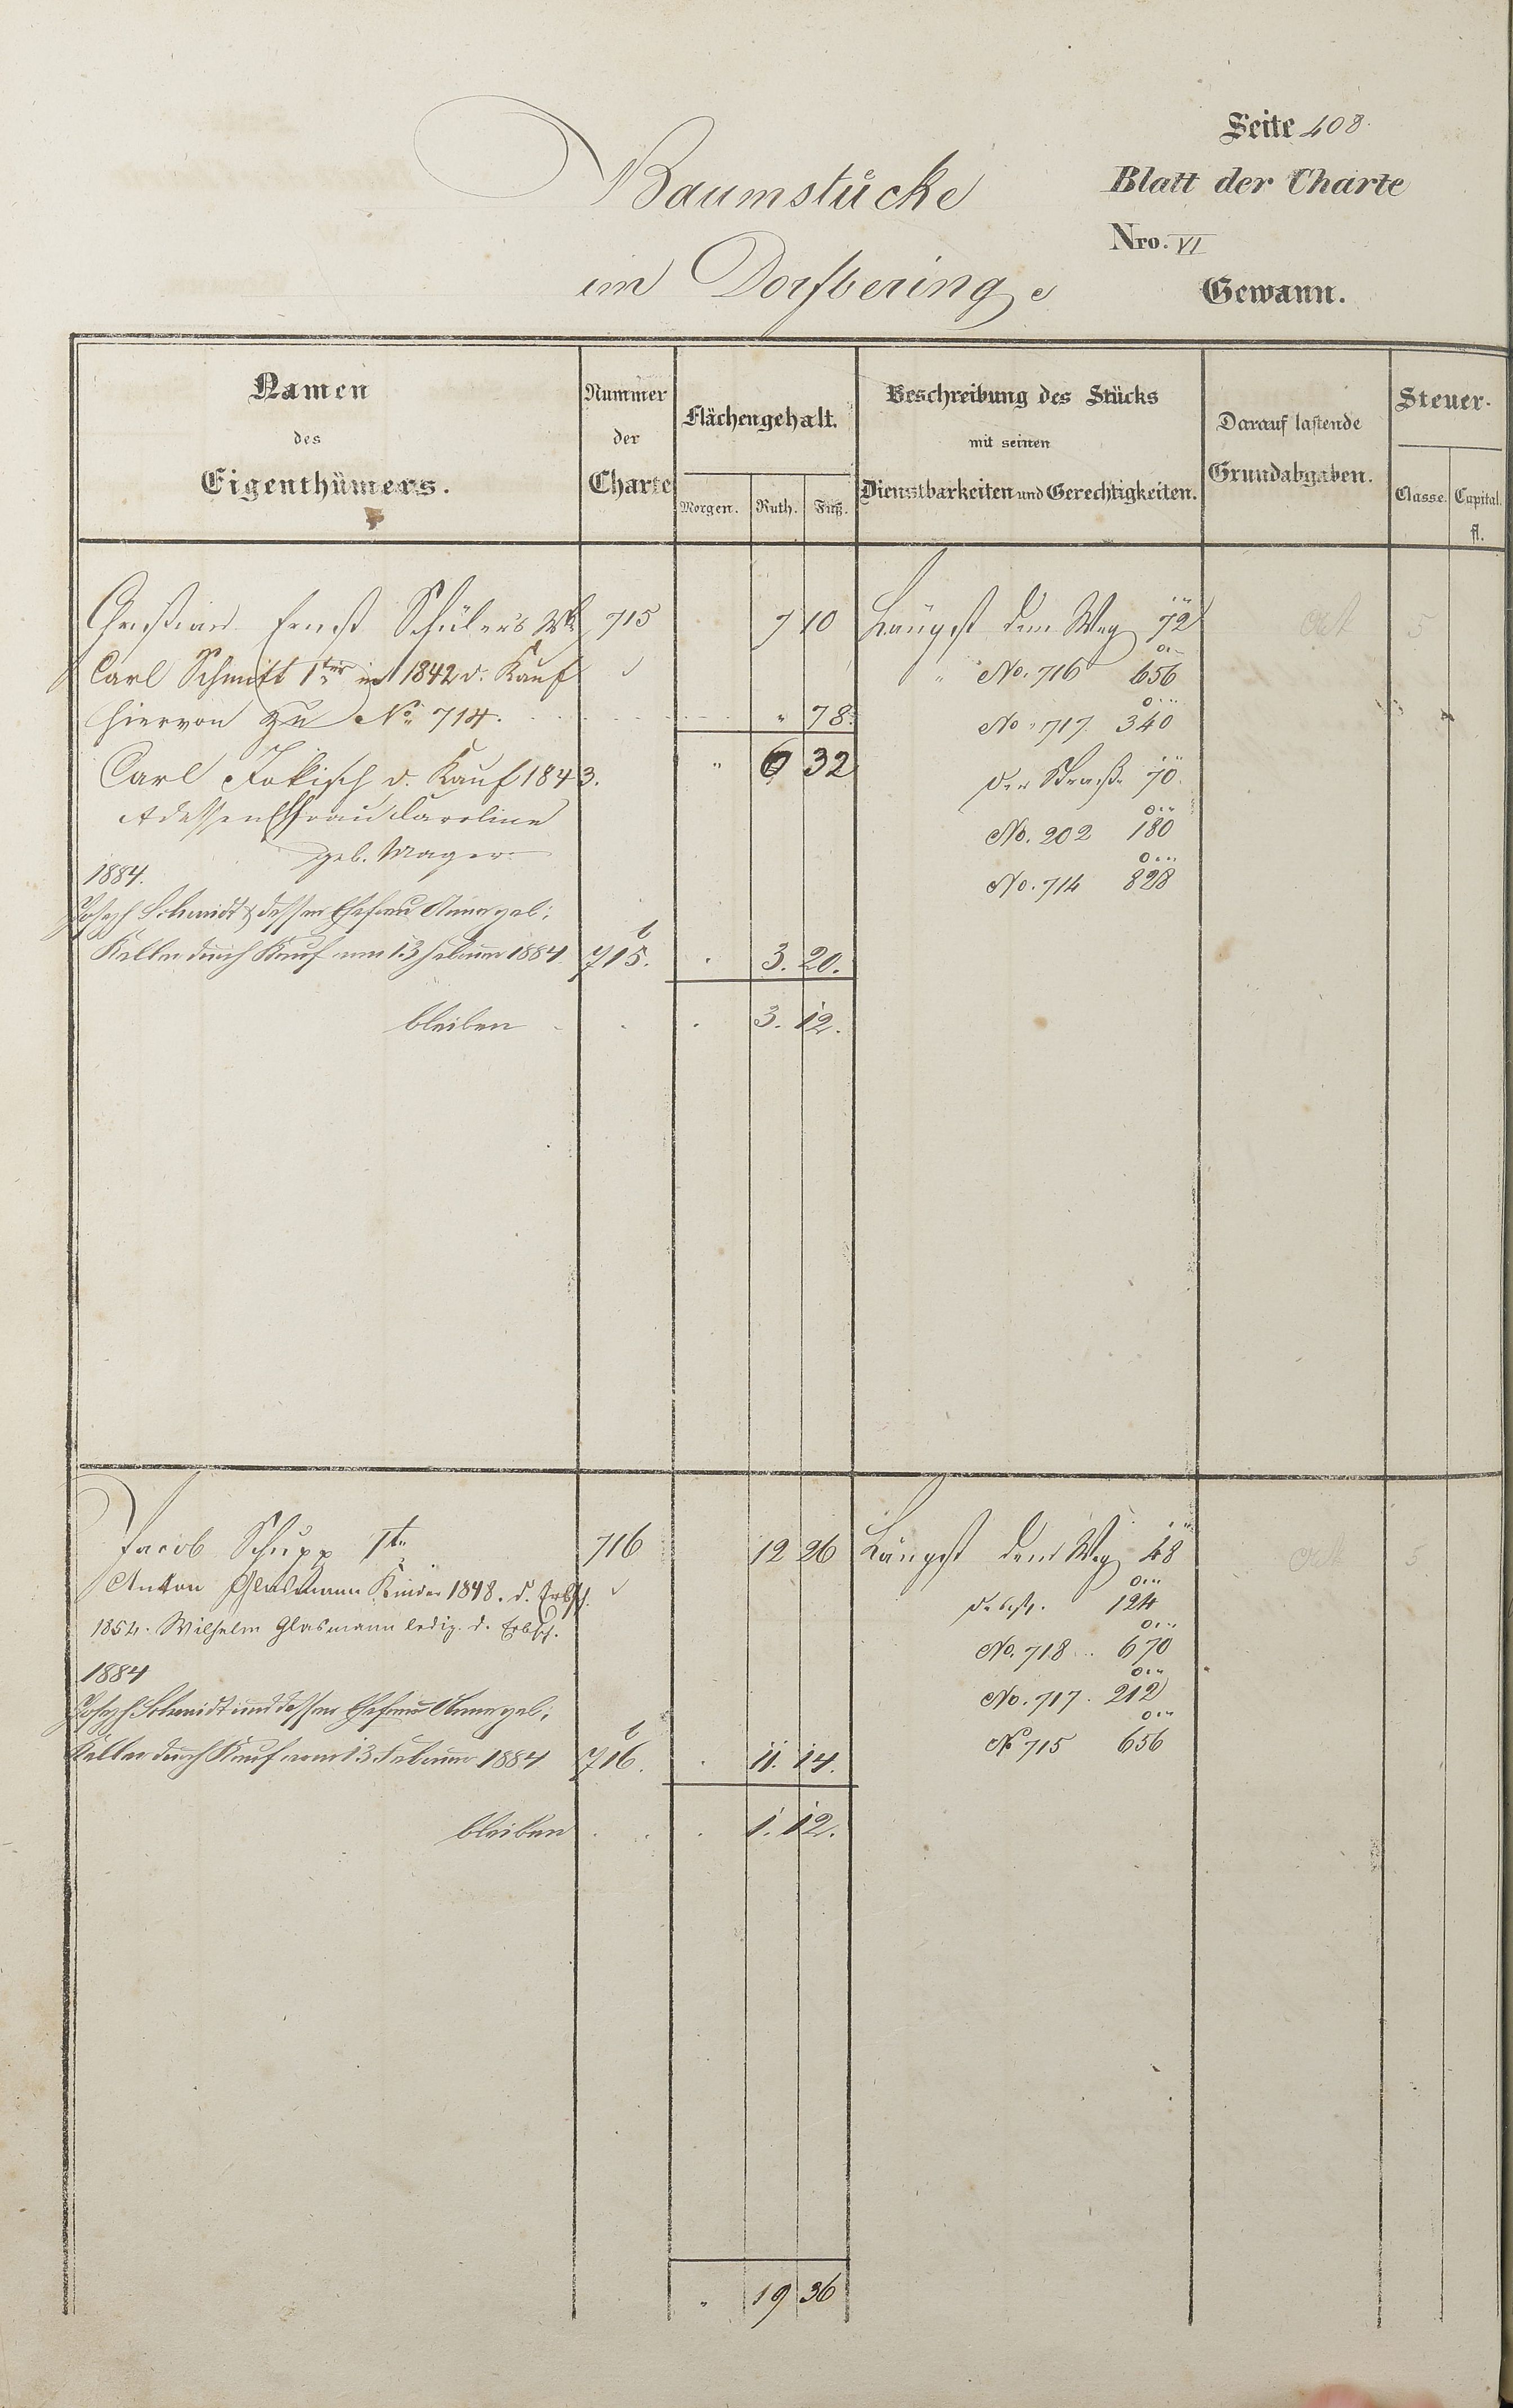 Seite 408.
Baumstücke
Blatt der Charte
Nro. VI
im Dorfberinge
Gewann.
Namen des Eigenthümers.
Nummer der Charte
Flächengehalt.
Morgen. Ruth. Fuß.
Beschreibung des Stücks mit seinen Dienstbarkeiten und Gerechtigkeiten.
Darauf lastende Grundabgaben.
Steuer-
Classe. Capital. fl.
Christian Ernst Schüler's Wb 715 7 10 Längst dem Weg 72 5
Carl Schmitt 1ter in 1842 d. Kauf " No. 716 656
hiervon zu No 714. " 78. No. 717. 340
Carl Jokisch d. Kauf 1843. " 6 32 der Straße 70.
dessen Ehfrau Caroline No. 202 180
geb. Mager
1884. No. 714 828
Joseph Schmidt & dessen Ehefrau Anna geb:
Keller durch Kauf vom 13 Februar 1884. 715. . 3. 20.
bleiben . . . 3. 12.
Jacob Schupp 1te 716 12 26 Längst dem Weg 48 5
Anton Glasmann Kinder 1848. d. Erbsch. 124
1854. Wilhelm Glasmann ledig. d. Erbsch. No. 718 670
1884 No. 717. 212
Joseph Schmidt und dessen Ehefrau Anna geb:
No 715 656
Keller durch Kauf vom 13. Februar 1884 716. . 11. 14.
bleiben . . . 1. 12.
" 19 36